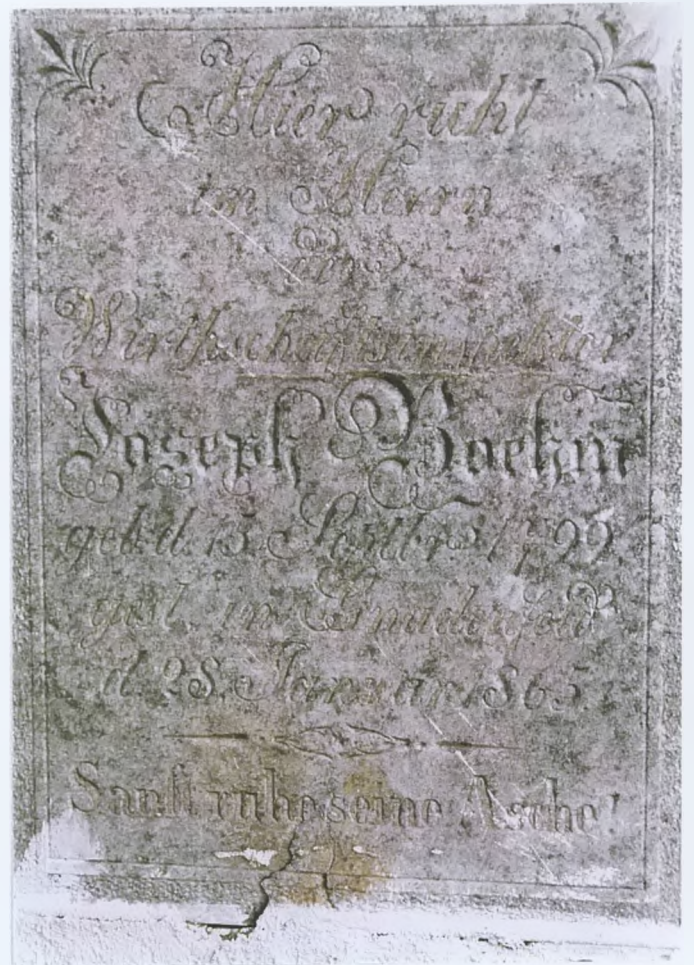 Hier ruht
im Herrn
der
Wirthschaftsinspektor
Joseph Boehm
geb. d. 15. Septbr. 1799.
gest. in Gnadenfeld
d. 28. Januar 1865.
Sanft ruhe seine Asche!